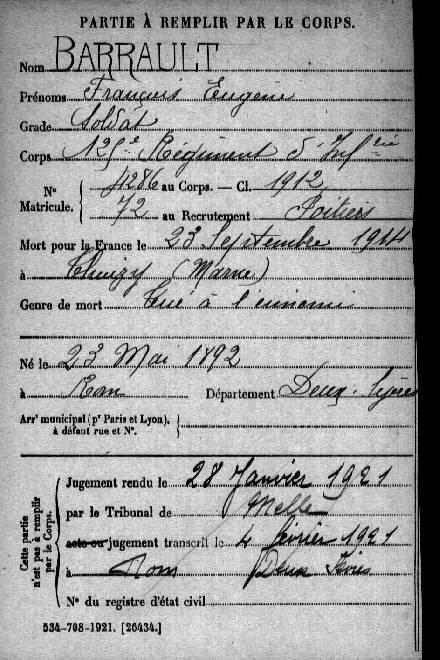 PARTIE À REMPLIR PAR LE CORPS.
Nom BARRAULT
Prénoms François Eugène
Grade Soldat
Corps 125e Régiment d'Infrie
N° Matricule. { 4286 au Corps. — Cl. 1912
72 au Recrutement Poitiers
Mort pour la France le 23 Septembre 1914
à Thuizy (Marne)
Genre de mort Tué à l'ennemi
Né le 23 Mai 1892
à Rom Département Deux-Sèvres
Arrt municipal (pr Paris et Lyon), à défaut rue et N°.
Cette partie n'est pas à remplir par le Corps.
Jugement rendu le 28 Janvier 1921
par le Tribunal de Melle
acte ou jugement transcrit le 4 février 1921
à Rom Deux Sèvres
N° du registre d'état civil
534-708-1921. [26434.]